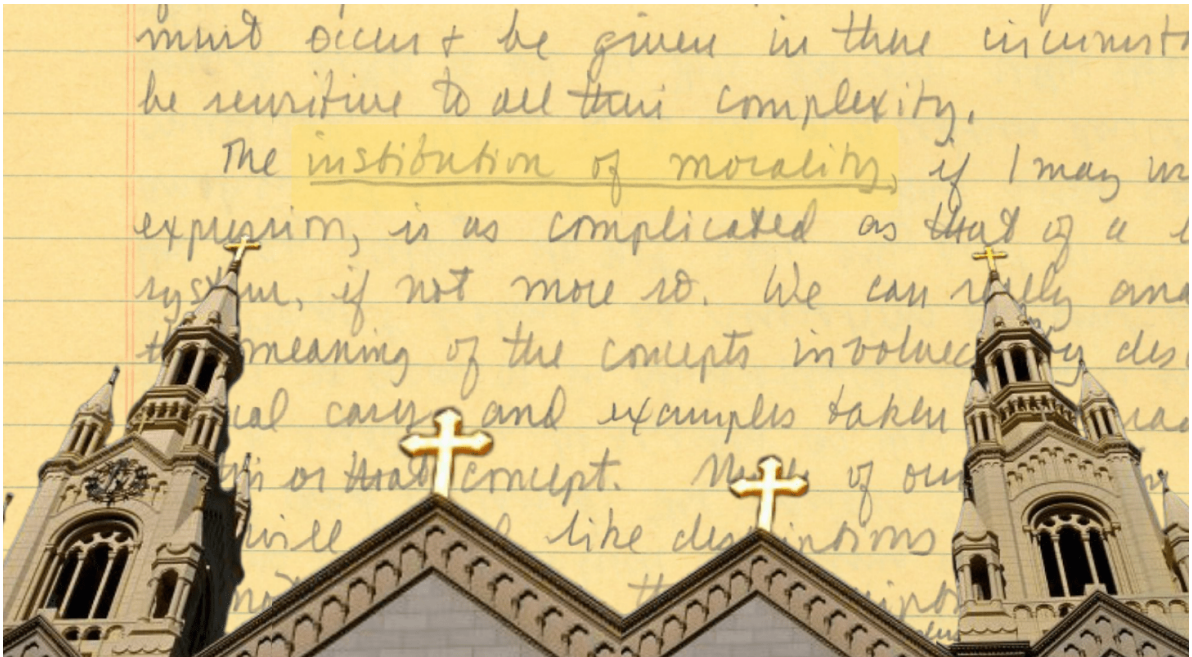 must occur & be given in these circumst
be sensitive to all their complexity.
The institution of morality, if I may us
expression, is as complicated as that of a l
system, if not more so. We can rarely ana
the meaning of the concepts involved by des
ual cases and examples taken
or that concept. of our
will like descriptions